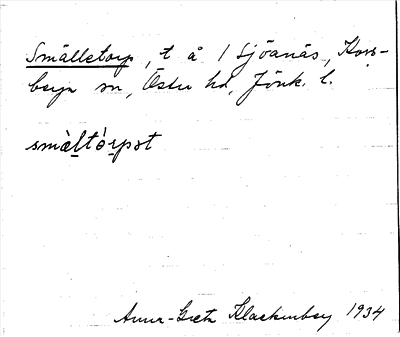 Smålletorp, t å 1 Sjöanäs, Kors-
berga sn, Östra hd, Jönk. l.
smàl̠tór̠pət
Anna-Greta Klackenberg 1934